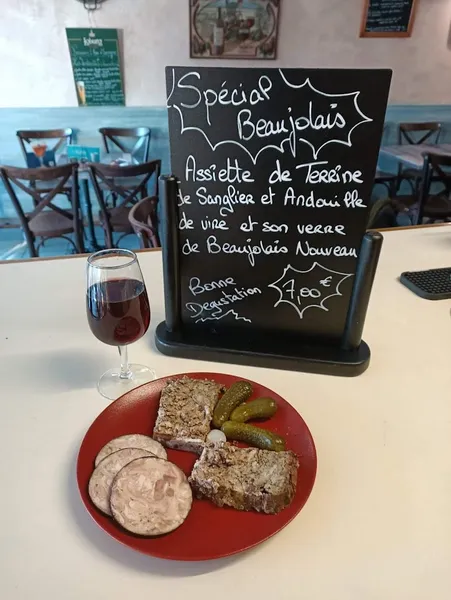 Spécial
Beaujolais
Assiette de Terrine
de Sanglier et Andouille
de vire et son verre
de Beaujolais Nouveau
Bonne
Degustation
7,00€